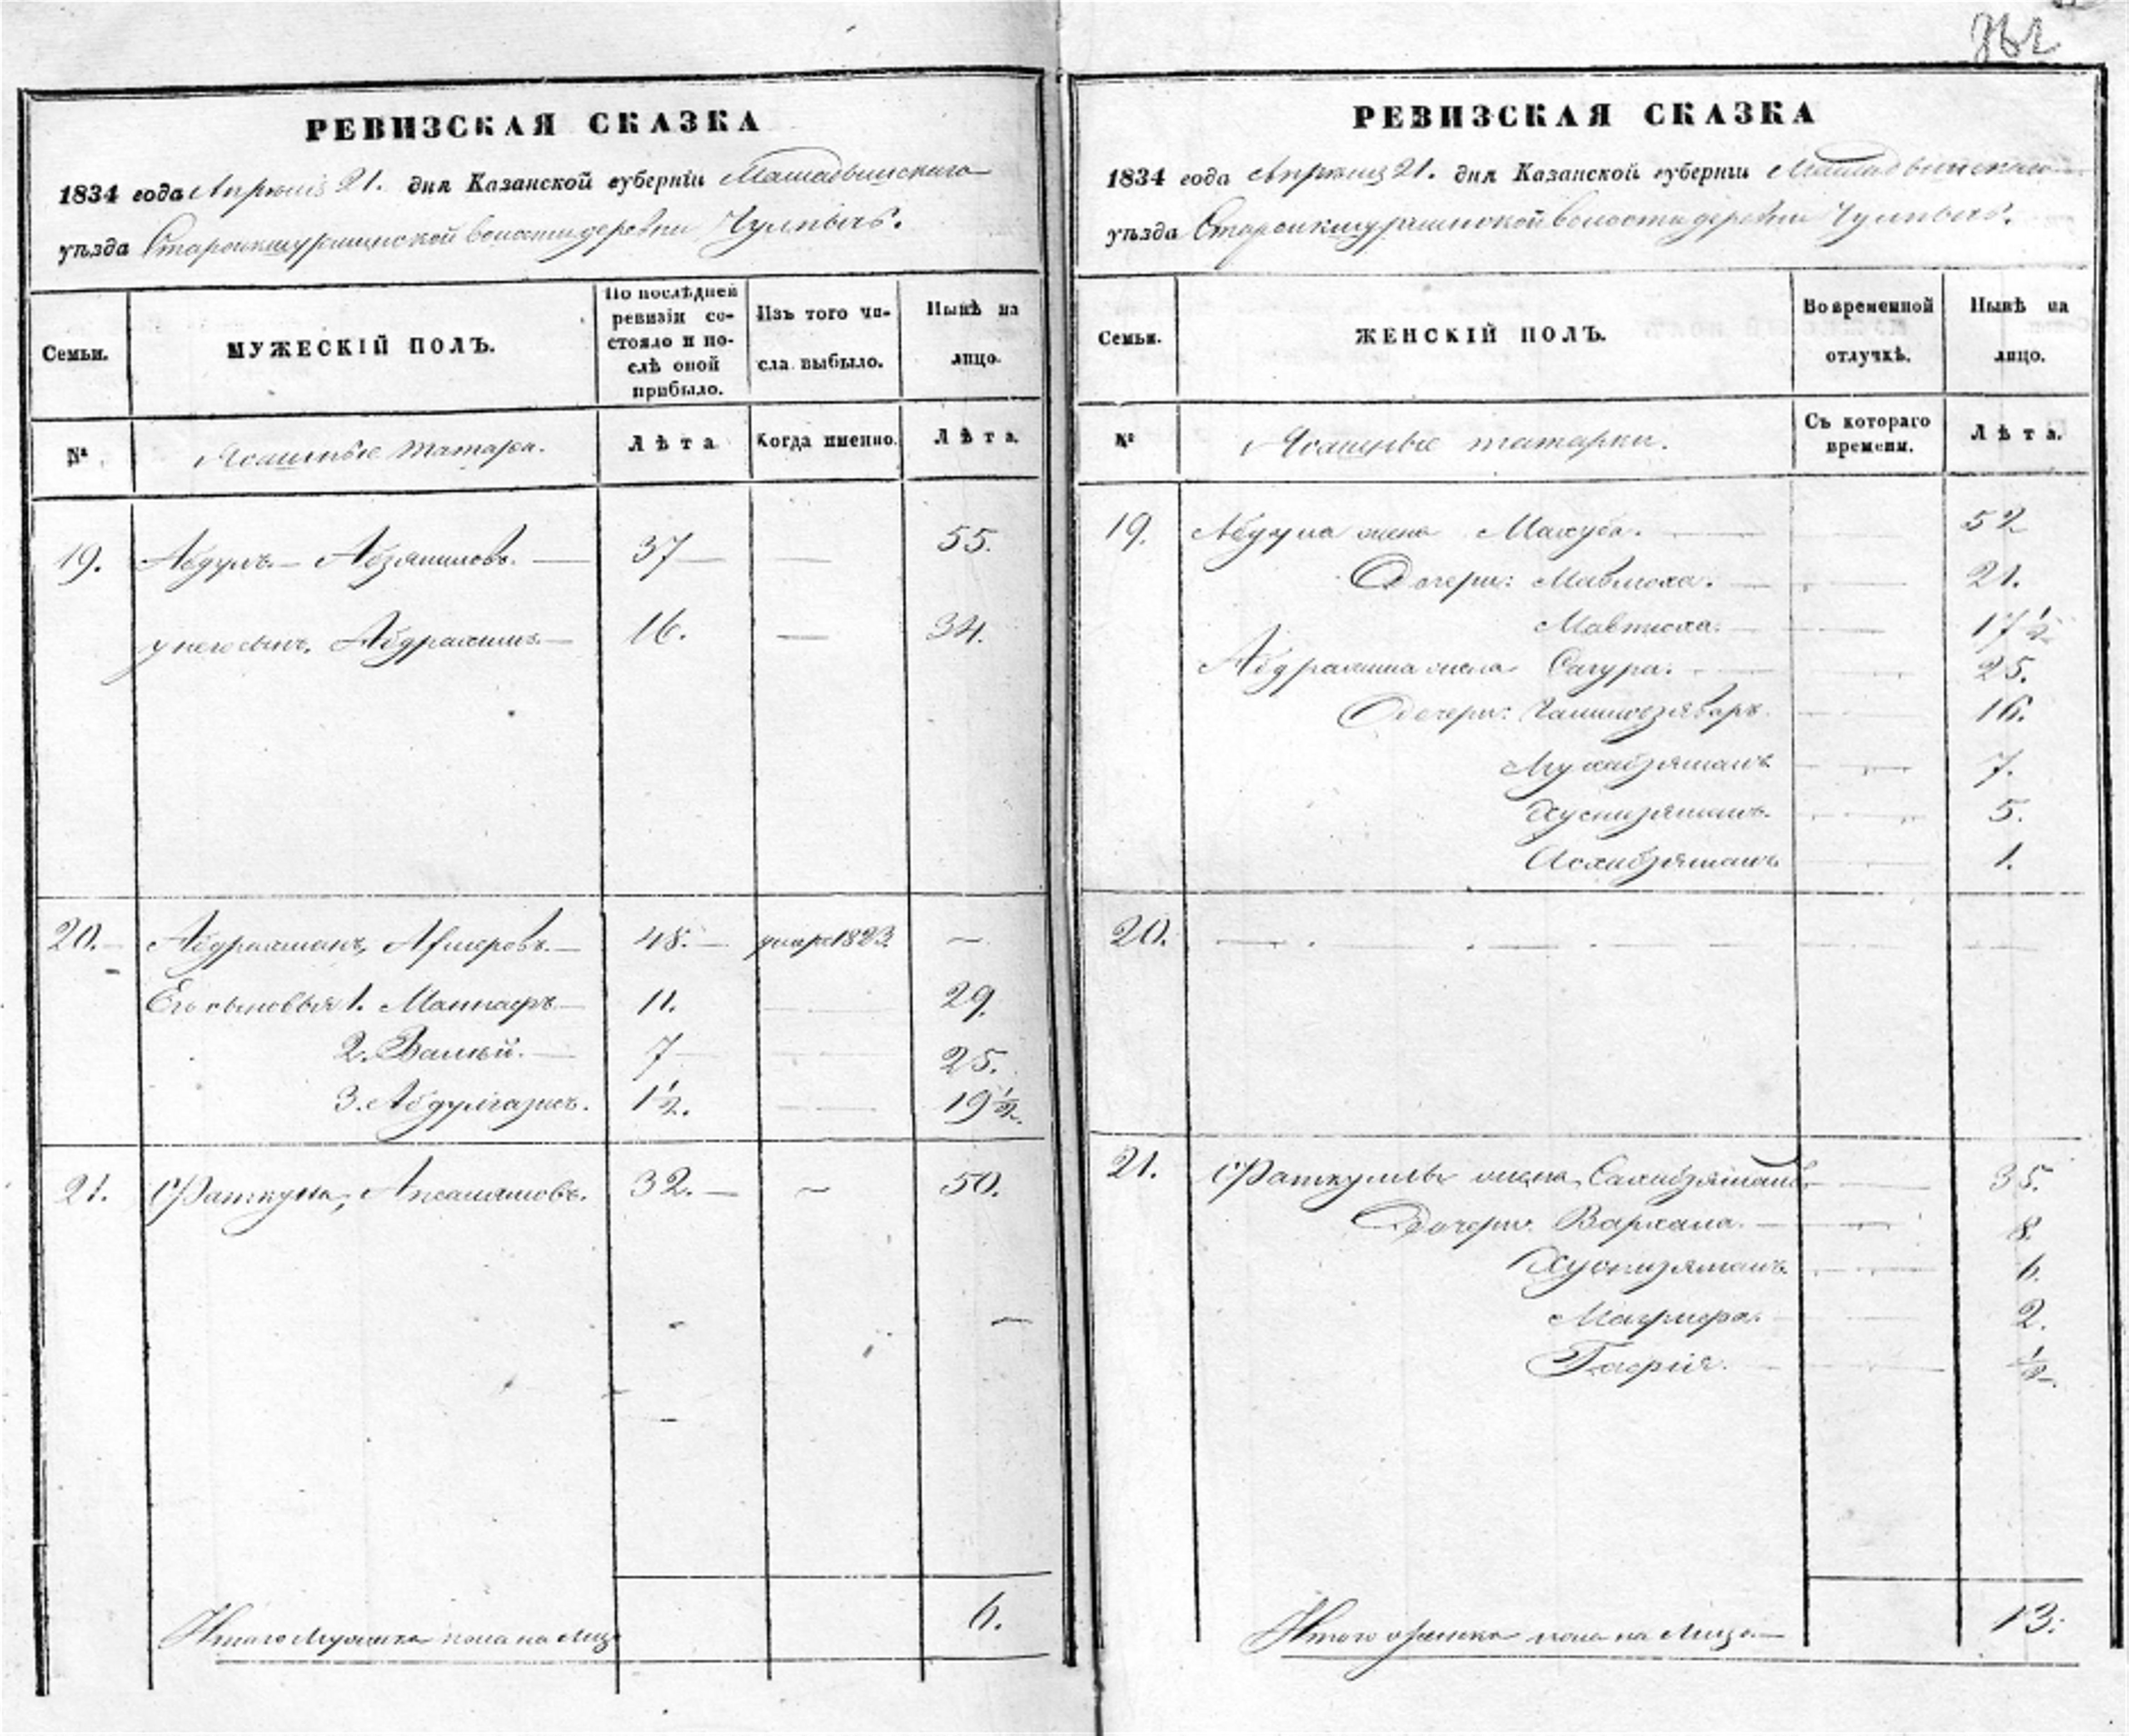 РЕВИЗСКАЯ СКАЗКА
1834 года Апрѣля 21. дня Казанской губернiи Мамадышскаго
уѣзда Староикшурминской волости деревни Чулпычь.
Семьи.
МУЖЕСКIЙ ПОЛЪ.
По послѣдней ревизiи состояло и послѣ оной прибыло.
Изъ того числа выбыло.
Нынѣ на лицо.
№
Ясашные татара.
Лѣта
Когда именно.
Лѣта.
19. Абдулъ Абзялиловъ. 37 — 55.
у него сынъ, Абдрахимъ 16. — 34.
20. Абдрахманъ, Амировъ. 45. умре 1823. —
Его сыновья 1. Маннафъ 11. 29.
2. Валѣй. 7 25.
3. Абдулгазисъ. 1½. 19½.
21. Фаткулла, Апсалямовъ. 32. — 50.
Итого мужеска пола на лицо 6.
862
РЕВИЗСКАЯ СКАЗКА
1834 года Апрѣля 21. дня Казанской губернiи Мамадышскаго
уѣзда Староикшурминской волости деревни Чулпычь.
Семьи.
ЖЕНСКIЙ ПОЛЪ.
Во временной отлучкѣ.
Нынѣ на лицо.
№
Ясашные татарки.
Съ котораго времени.
Лѣта.
19. Абдула жена Махуба. 52
Дочери: 21.
17½
Абдрахима жена Сагура. 25.
Дочери: 16.
Мухибзямалъ 7.
Хуснизямалъ. 5.
Асхабзямалъ 1.
20.
21. Фаткуллы жена, Сахибзямалъ 35.
Дочери: Вархала. 8.
Хуснизямалъ 6.
2.
½.
Итого женска пола на лицо 13.